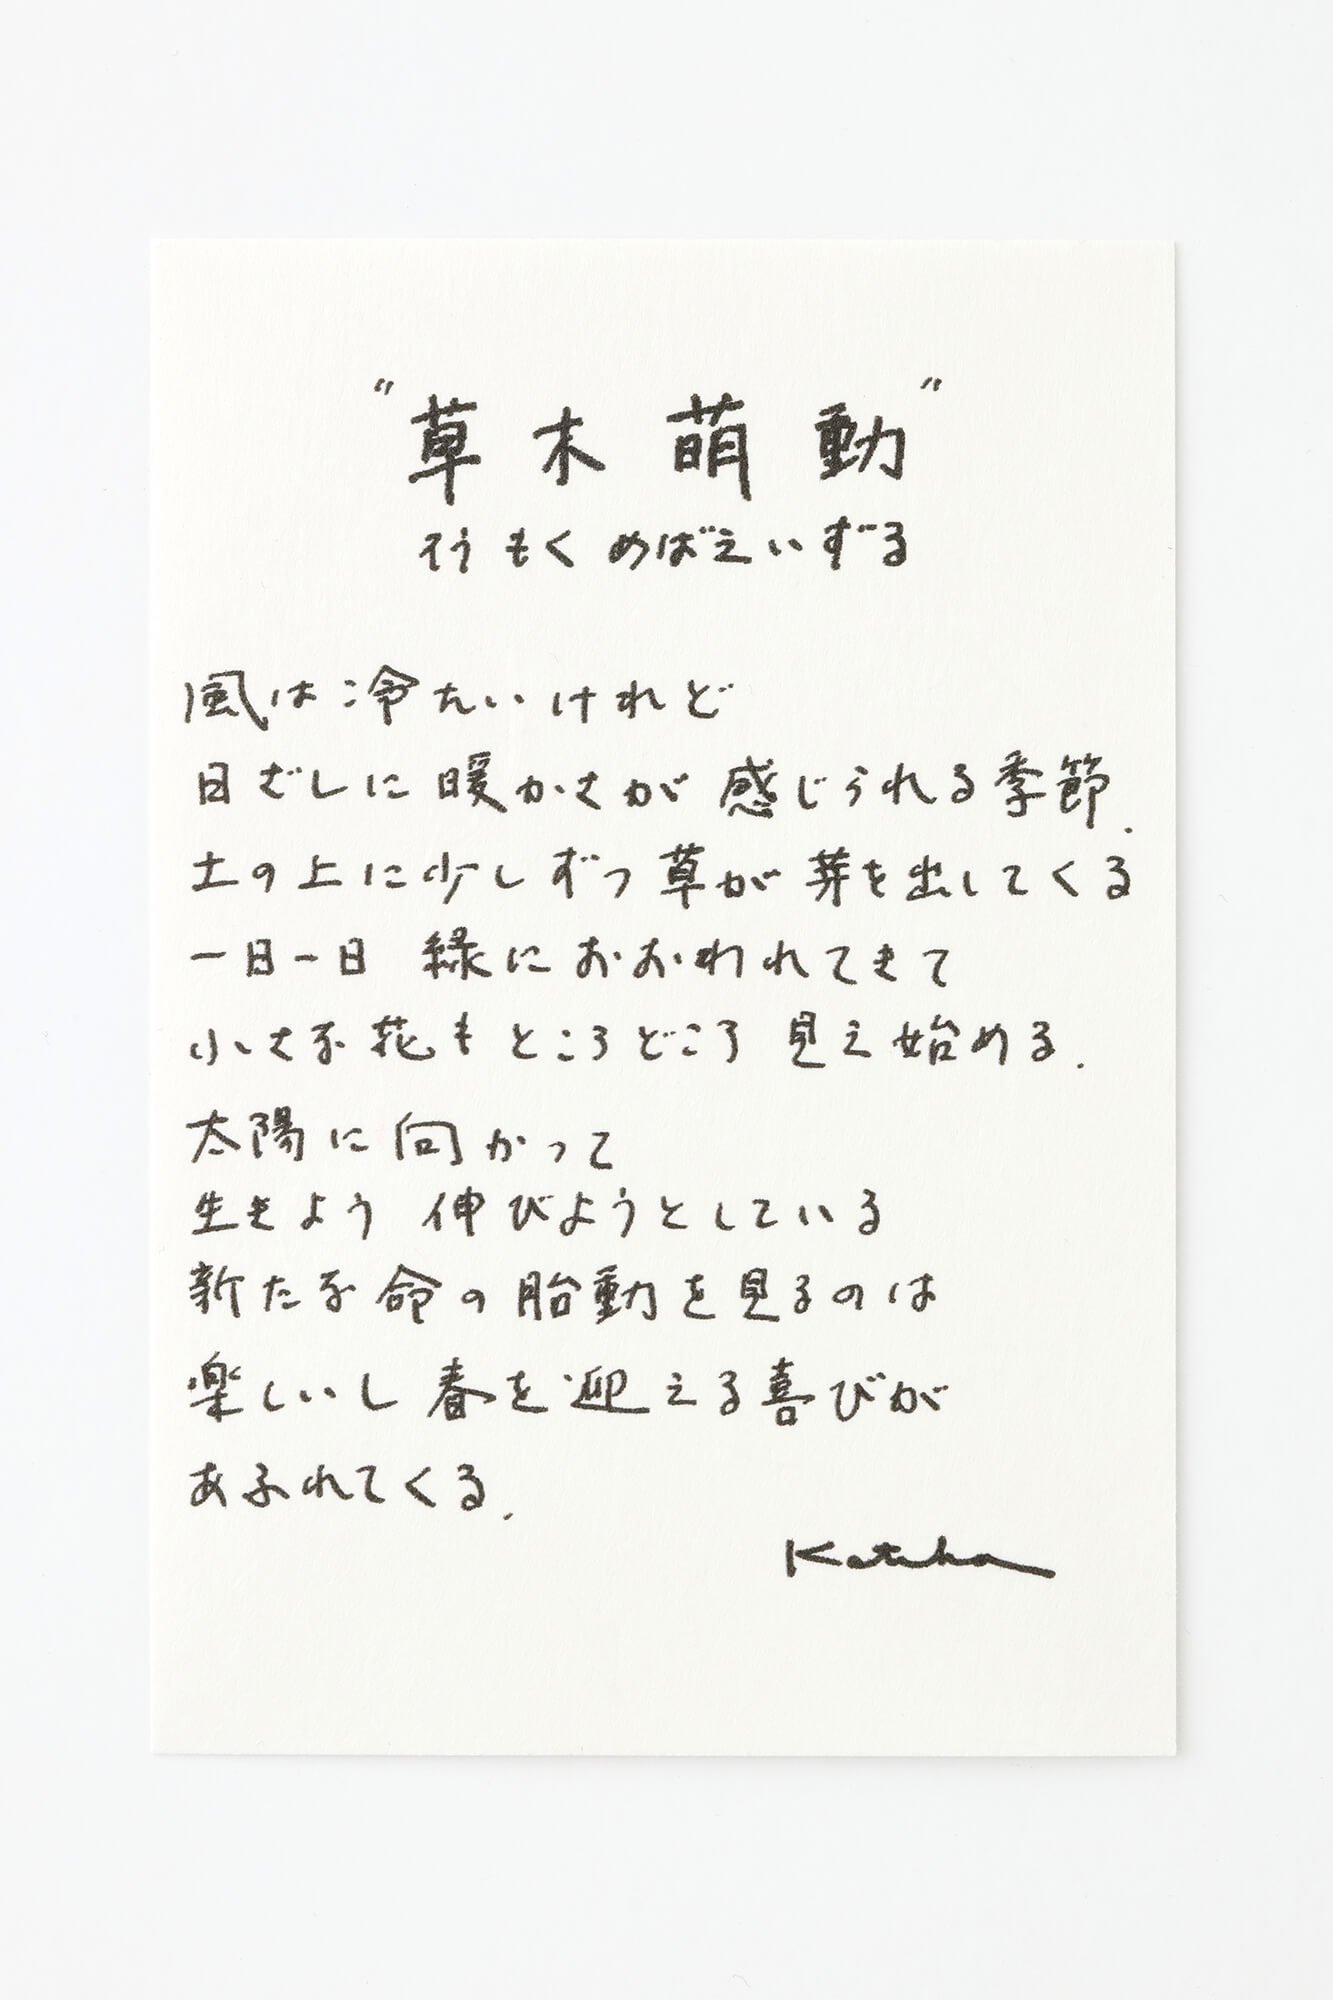 "草木萌動"
そうもく めばえいずる
風は冷たいけれど
日ざしに暖かさが感じられる季節.
土の上に少しずつ草が芽を出してくる
一日一日 緑におおわれてきて
小さな花もところどころ見え始める.
太陽に向かって
生きよう 伸びようとしている
新たな命の胎動を見るのは
楽しいし春を迎える喜びが
あふれてくる.